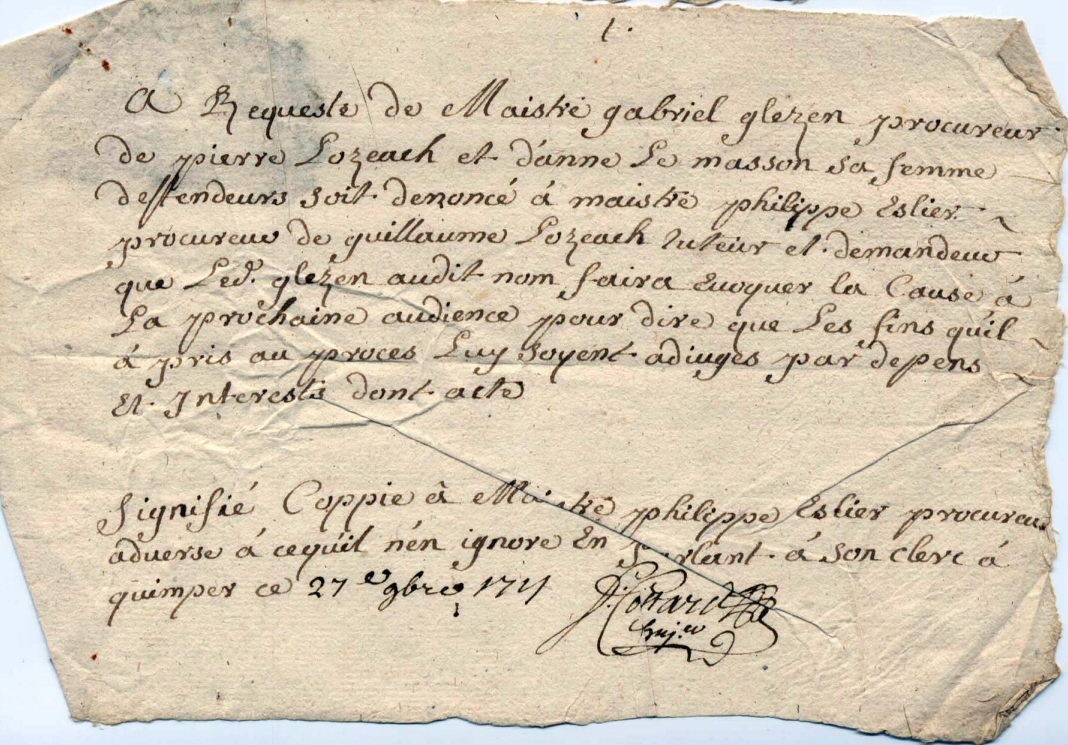 1.
A Requeste de Maistre gabriel glezen procureur
de pierre Lozeach et d'anne Le masson sa femme
deffendeurs soit denoncé á maistre philippe Eslier
procureur de guillaume Lozeach tuteur et demandeur
que Led. glezen audit nom faira Evoquer la Cause á
La prochaine audience pour dire que Les fins qu'il
á pris au proces Luy soyent adiuges par depens
Et Interests dont acte
Signifié Coppie á Maistre philippe Eslier procureur
aduerse á cequil n'én ignore En parlant á son clerc á
quimper ce 27e 9bre